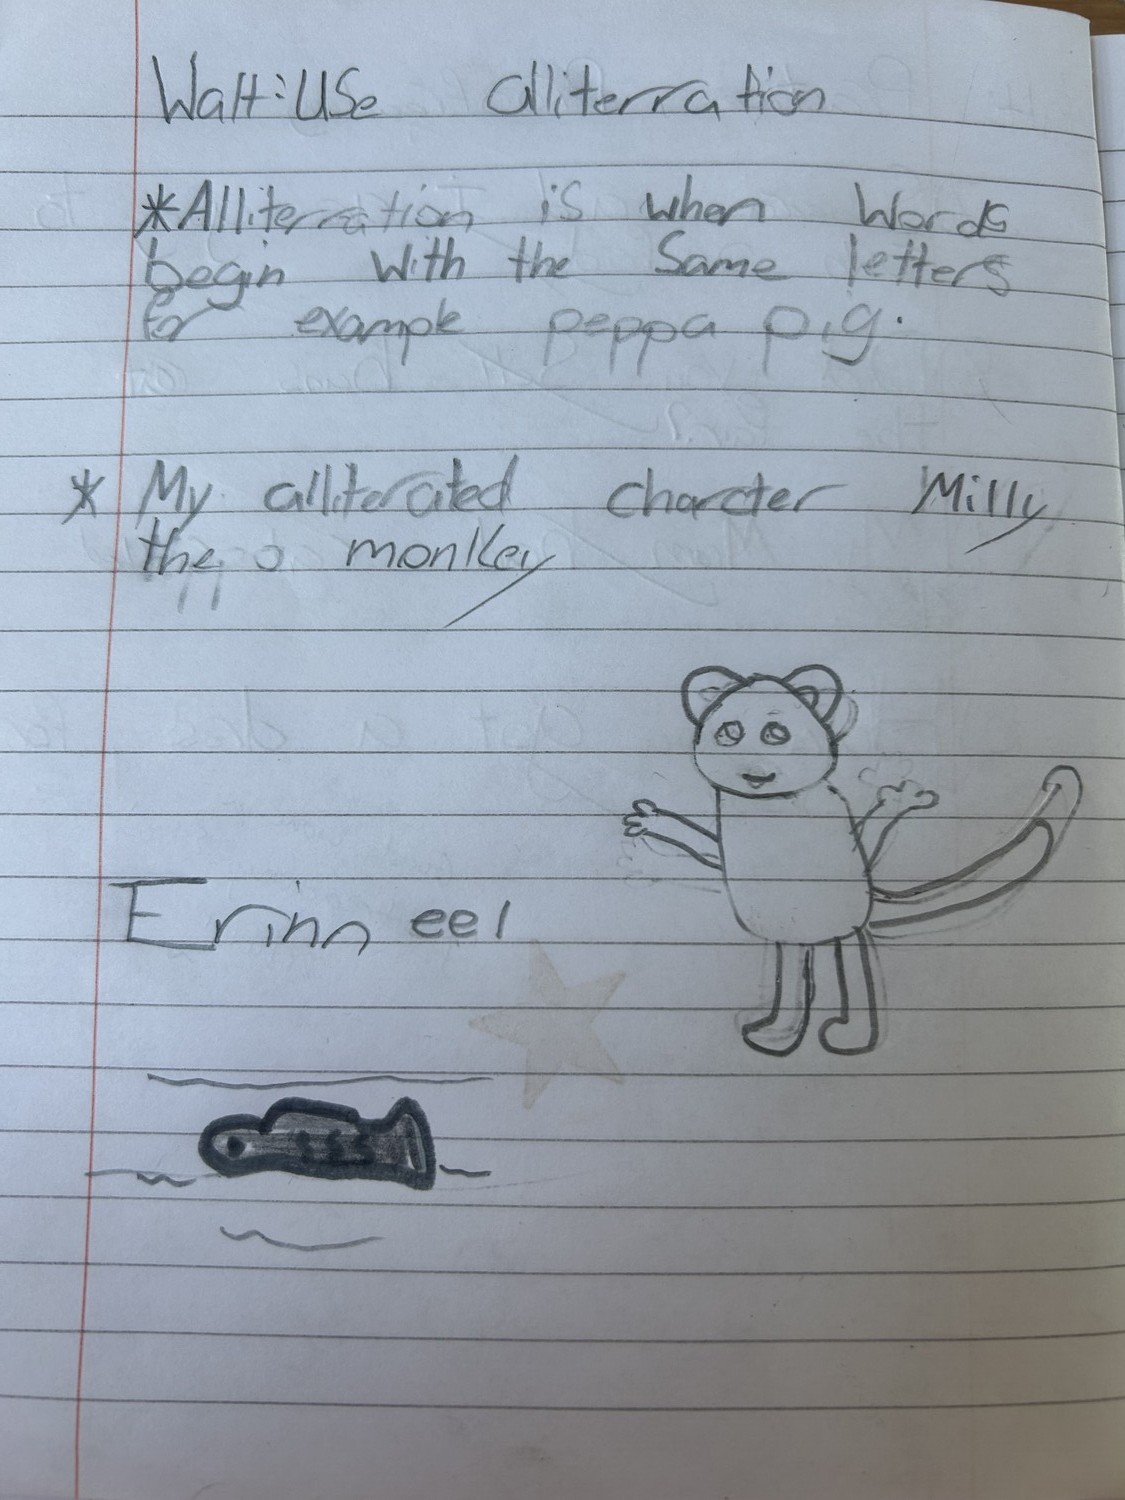 Walt: Use alliterration
*Alliterration is when words
begin with the same letters
for example peppa pig.
* My alliterated charcter Milly
the monkey
Erinn eel